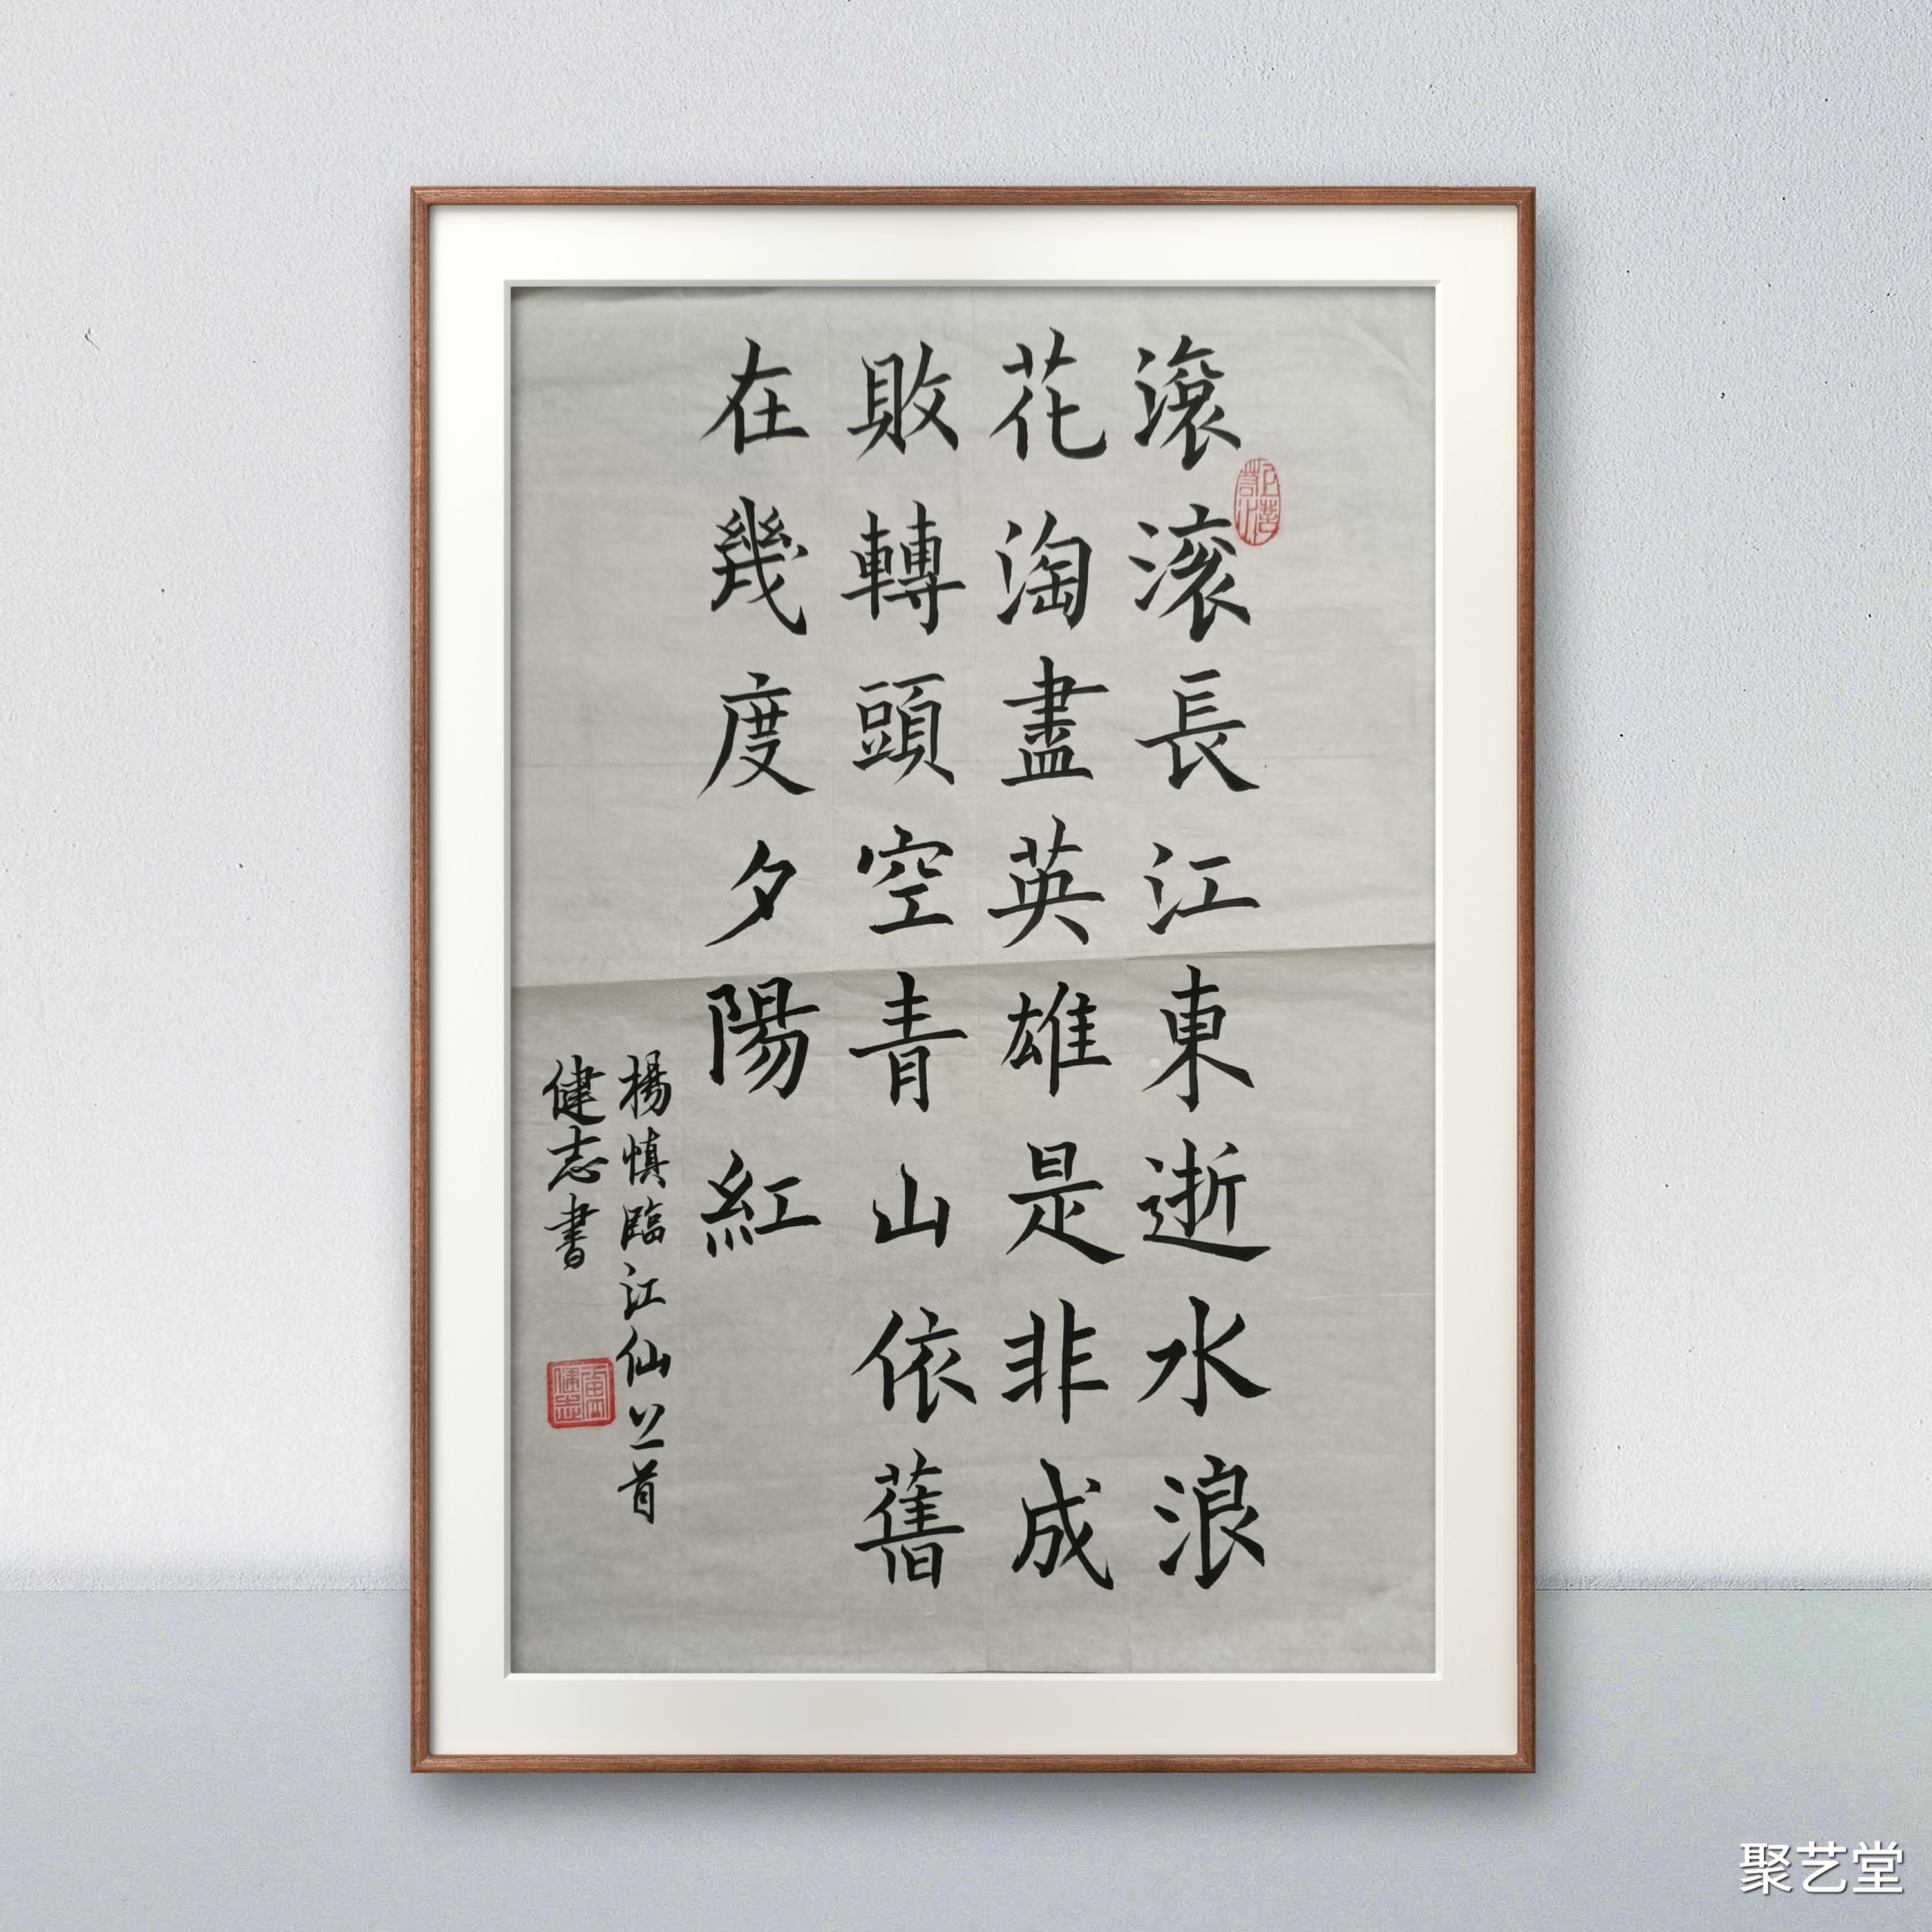 滾滚長江東逝水浪
花淘盡英雄是非成
敗轉頭空青山依舊
在幾度夕陽紅
楊慎臨江仙首
健志書
聚艺堂